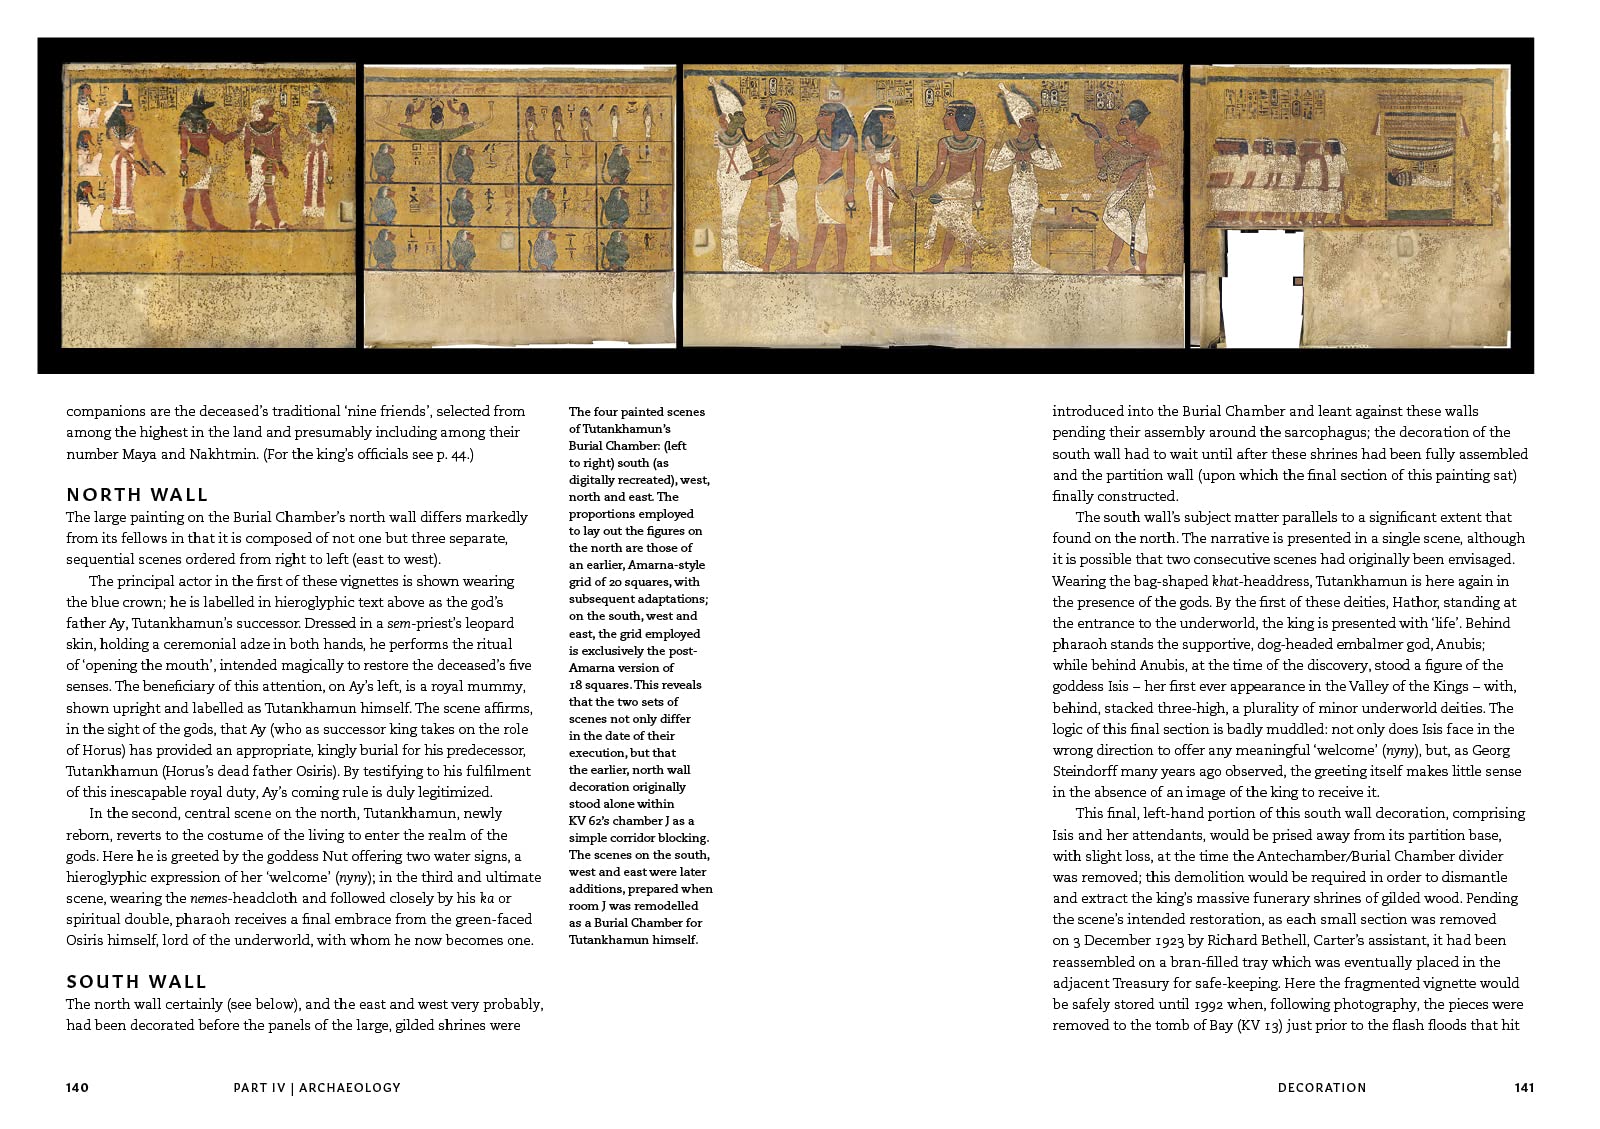 companions are the deceased’s traditional ‘nine friends’, selected from
among the highest in the land and presumably including among their
number Maya and Nakhtmin. (For the king’s officials see p. 44.)
NORTH WALL
The large painting on the Burial Chamber’s north wall differs markedly
from its fellows in that it is composed of not one but three separate,
sequential scenes ordered from right to left (east to west).
The principal actor in the first of these vignettes is shown wearing
the blue crown; he is labelled in hieroglyphic text above as the god’s
father Ay, Tutankhamun’s successor. Dressed in a sem-priest’s leopard
skin, holding a ceremonial adze in both hands, he performs the ritual
of ‘opening the mouth’, intended magically to restore the deceased’s five
senses. The beneficiary of this attention, on Ay’s left, is a royal mummy,
shown upright and labelled as Tutankhamun himself. The scene affirms,
in the sight of the gods, that Ay (who as successor king takes on the role
of Horus) has provided an appropriate, kingly burial for his predecessor,
Tutankhamun (Horus’s dead father Osiris). By testifying to his fulfilment
of this inescapable royal duty, Ay’s coming rule is duly legitimized.
In the second, central scene on the north, Tutankhamun, newly
reborn, reverts to the costume of the living to enter the realm of the
gods. Here he is greeted by the goddess Nut offering two water signs, a
hieroglyphic expression of her ‘welcome’ (nyny); in the third and ultimate
scene, wearing the nemes-headcloth and followed closely by his ka or
spiritual double, pharaoh receives a final embrace from the green-faced
Osiris himself, lord of the underworld, with whom he now becomes one.
SOUTH WALL
The north wall certainly (see below), and the east and west very probably,
had been decorated before the panels of the large, gilded shrines were
The four painted scenes
of Tutankhamun’s
Burial Chamber: (left
to right) south (as
digitally recreated), west,
north and east. The
proportions employed
to lay out the figures on
the north are those of
an earlier, Amarna-style
grid of 20 squares, with
subsequent adaptations;
on the south, west and
east, the grid employed
is exclusively the post-
Amarna version of
18 squares. This reveals
that the two sets of
scenes not only differ
in the date of their
execution, but that
the earlier, north wall
decoration originally
stood alone within
KV 62’s chamber J as a
simple corridor blocking.
The scenes on the south,
west and east were later
additions, prepared when
room J was remodelled
as a Burial Chamber for
Tutankhamun himself.
introduced into the Burial Chamber and leant against these walls
pending their assembly around the sarcophagus; the decoration of the
south wall had to wait until after these shrines had been fully assembled
and the partition wall (upon which the final section of this painting sat)
finally constructed.
The south wall’s subject matter parallels to a significant extent that
found on the north. The narrative is presented in a single scene, although
it is possible that two consecutive scenes had originally been envisaged.
Wearing the bag-shaped khat-headdress, Tutankhamun is here again in
the presence of the gods. By the first of these deities, Hathor, standing at
the entrance to the underworld, the king is presented with ‘life’. Behind
pharaoh stands the supportive, dog-headed embalmer god, Anubis;
while behind Anubis, at the time of the discovery, stood a figure of the
goddess Isis – her first ever appearance in the Valley of the Kings – with,
behind, stacked three-high, a plurality of minor underworld deities. The
logic of this final section is badly muddled: not only does Isis face in the
wrong direction to offer any meaningful ‘welcome’ (nyny), but, as Georg
Steindorff many years ago observed, the greeting itself makes little sense
in the absence of an image of the king to receive it.
This final, left-hand portion of this south wall decoration, comprising
Isis and her attendants, would be prised away from its partition base,
with slight loss, at the time the Antechamber/Burial Chamber divider
was removed; this demolition would be required in order to dismantle
and extract the king’s massive funerary shrines of gilded wood. Pending
the scene’s intended restoration, as each small section was removed
on 3 December 1923 by Richard Bethell, Carter’s assistant, it had been
reassembled on a bran-filled tray which was eventually placed in the
adjacent Treasury for safe-keeping. Here the fragmented vignette would
be safely stored until 1992 when, following photography, the pieces were
removed to the tomb of Bay (KV 13) just prior to the flash floods that hit
140 PART IV | ARCHAEOLOGY
DECORATION 141